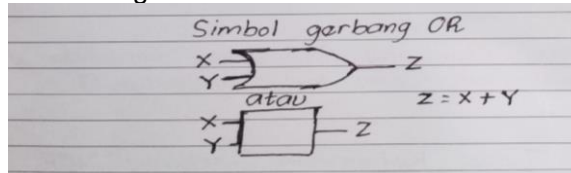 Simbol gerbang OR
X
Z
Y
atau
Z = X + Y
X
Z
Y